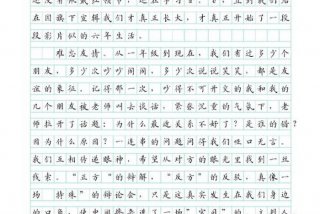 在国旗下宣辑我们才真正长大,才真正开始了一段
段影片似的六年生活。
难忘友情。从一年级到现在,我们有过多少个
朋友,多少次吵吵闹闹,多少次说说笑笑,都是友
谊的象征。记得那一次,吵得不可开交的我和我的
几个朋友被老师叫去谈话。紧张沉重的气氛下,老
师拉开了话题:为什么最近关系不好了?是谁的错?
因为什么原因?一连串的问题问得我们哑口无言。
我们互相传递眼神,希望从对方的眼光里找到一丝
线索。“正方”的辩解,“反方”的反驳,真像一
场“特殊”的辩论会,只是这真实发生在我们身边